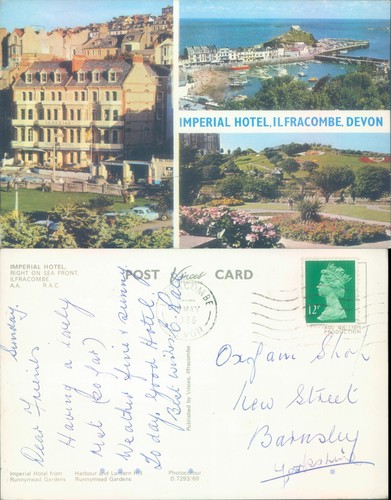 IMPERIAL HOTEL, ILFRACOMBE, DEVON
IMPERIAL HOTEL,
RIGHT ON SEA FRONT,
ILFRACOMBE
A.A. R.A.C
POST CARD
Sunday.
Dear Friends
Having a lovely
rest (so far)
Weather fine & sunny
to day. Good Hotel
Best wishes
Published by Vinces, Ilfracombe
MAY
DEVON
12P
Oxfam Shop
New Street
Barnsley
Yorkshire
Imperial Hotel from
Runnymead Gardens
Harbour and Lantern Hill
Runnymead Gardens
Photocolour
D.7293/69